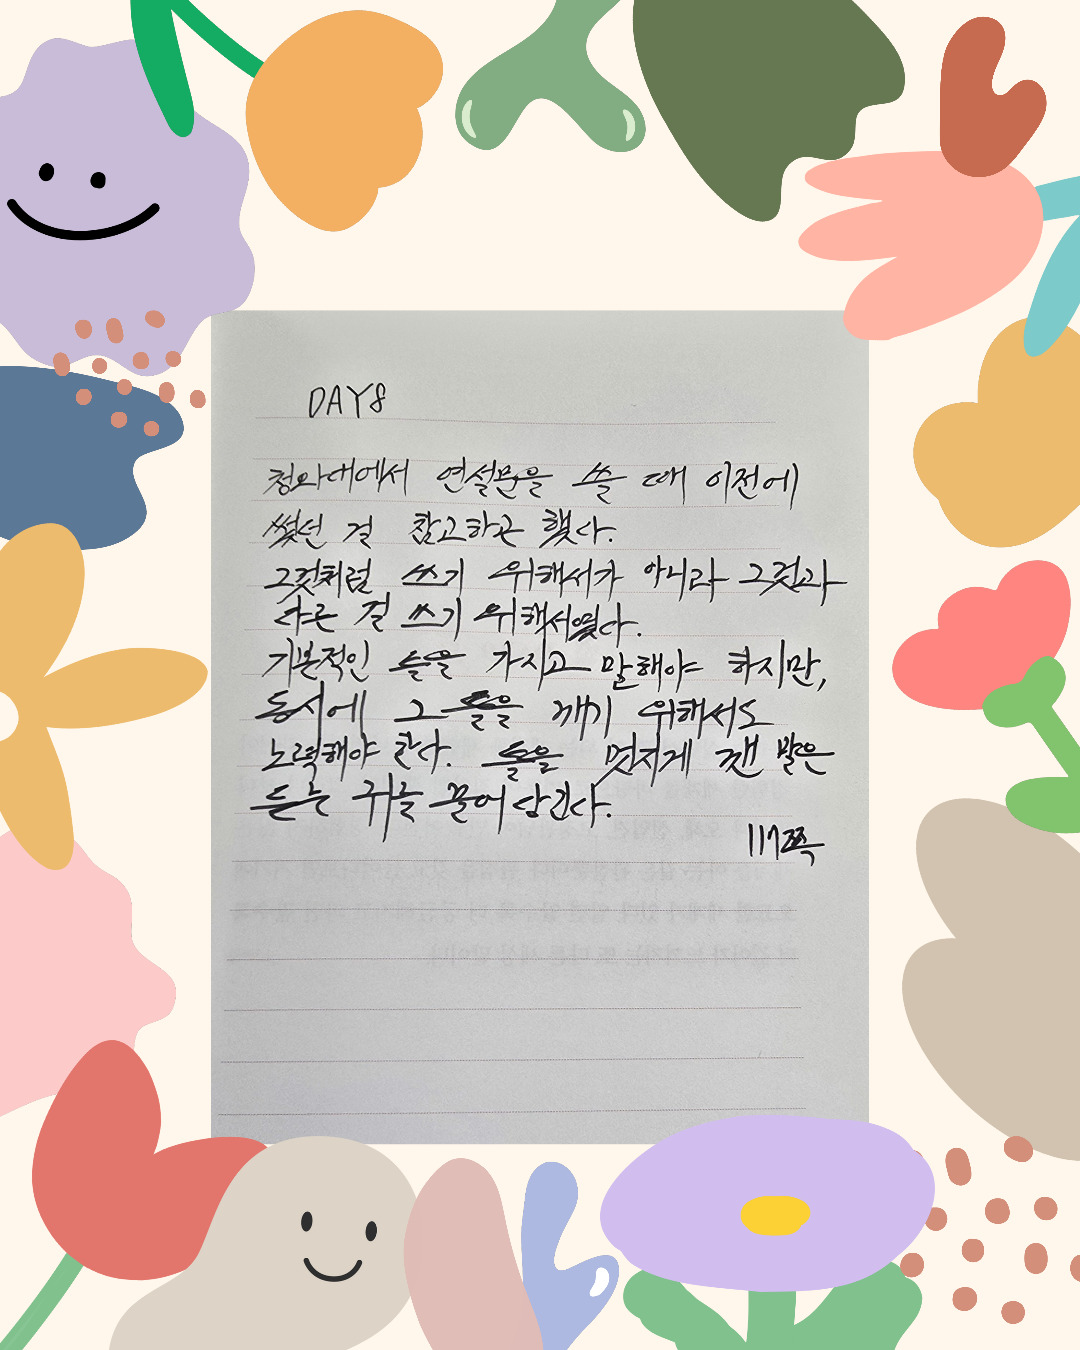 DAY8
청와대에서 연설문을 쓸 때 이전에
썼던 걸 참고하곤 했다.
그것처럼 쓰기 위해서가 아니라 그것과
다른 걸 쓰기 위해서였다.
기본적인 틀을 가지고 말해야 하지만,
동시에 그 틀을 깨기 위해서도
노력해야 한다. 틀을 멋지게 깬 말은
듣는 귀를 끌어당긴다.
117쪽